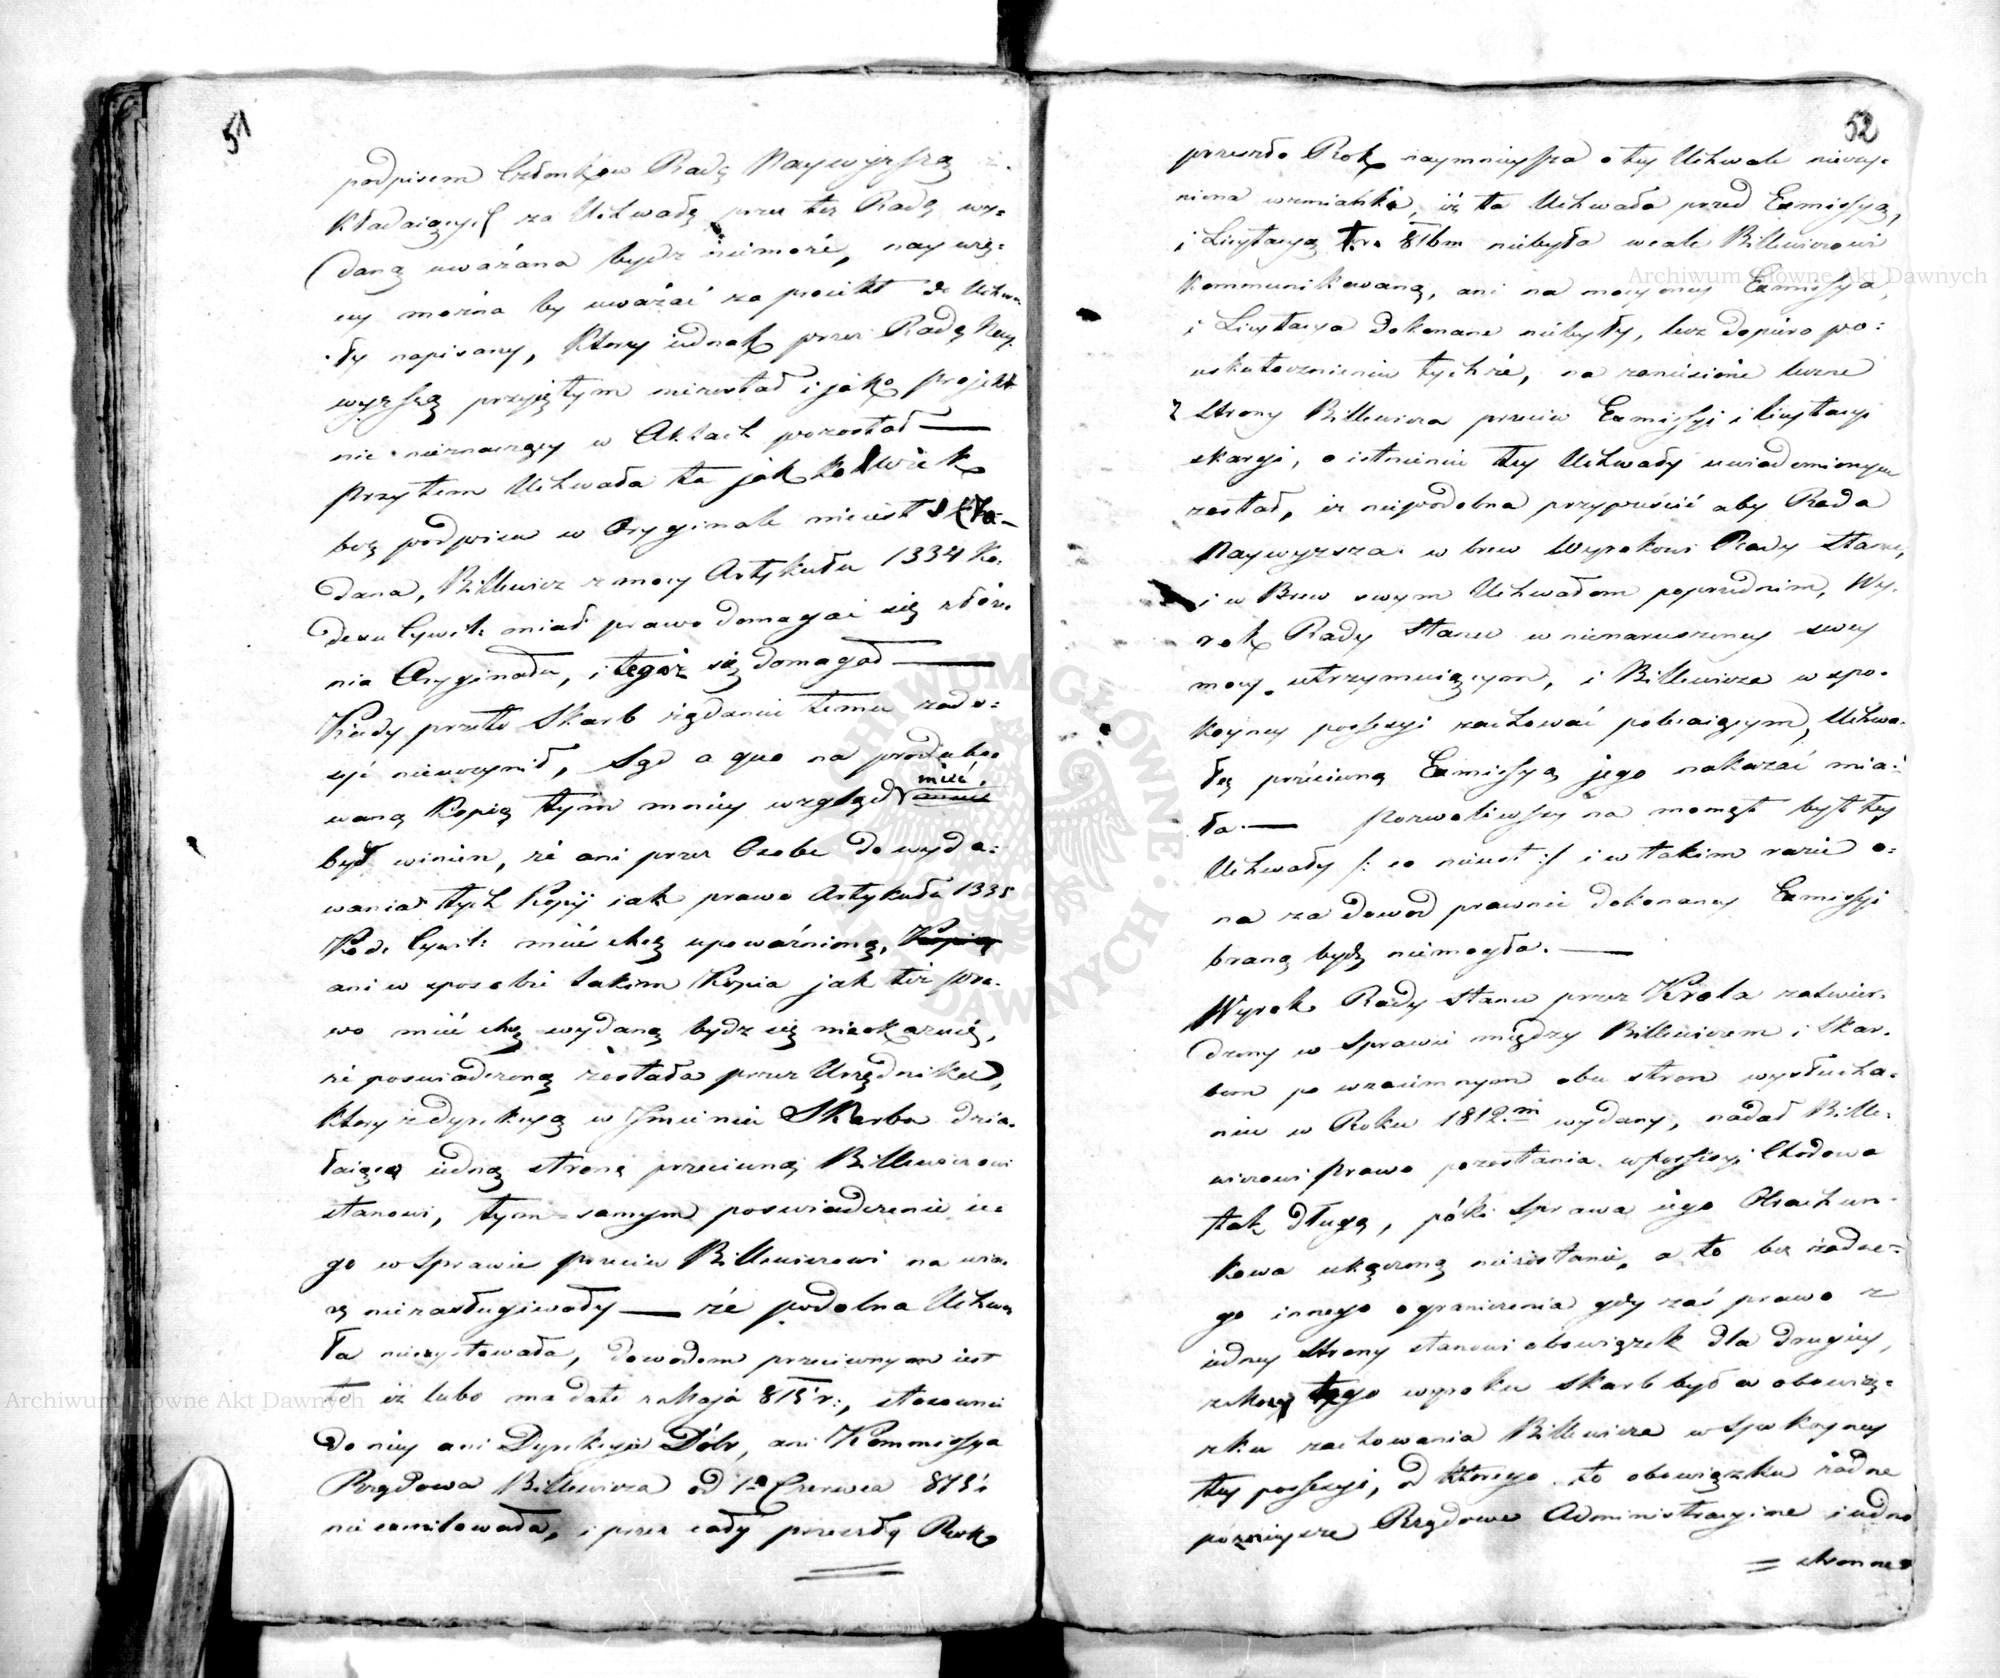 51
podpisem Członków Radę Naywyższą
kładaiących za Uchwałę przez tęż Radę wy=
daną uważana bydz niemoże, nay wię=
cey można by uważać za proiekt do Uchwa
ły napisany, który iednak przez Radę Nay
wyższą przyiętym niezostał i jako projekt
nic nieznaczący w Aktach pozostał —
Przytem Uchwała ta jakkolwiek
bez podpisu w Oryginale nieiest skła=
dana, Billewicz z mocy Artykułu 1334 Ko=
dexu Cywil: miał prawo domagać się złoże
nia Oryginału, i tegóż się domagał —
Kiedy przeto Skarb żądaniu temu zado=
syć nieuczynił, Sąd a quo na produko
waną Kopią tym mniey wzgląd mieć
był winien, że ani przez Osobę do wyda=
wania tych Kopij iak prawo Artykułu 1335
Kod. Cywil: mieć chcę upoważnioną, Kopią
ani w sposobie takim Kopia jak też pra=
wo mieć chcę wydaną bydz się nieokazuie,
że poswiadczoną została przez Urzędnika,
który z dyrekcyą w Jmieniu Skarbu dzia=
łaiącą iedną stronę przeciwną Billewiczowi
stanowi, tym samym poswiadczenie ie=
go w Sprawie przeciw Billewiczowi na wia=
rę niezasługiwały — że podobna Uchwa
ła nieexystowała, dowodem przeciwnym iest
to iż lubo ma datę z Maja 815 r:, stosownie
do niey ani Dyrekcyia Dóbr, ani Kommissya
Rządowa Billewicza od 1o Czerwca 815:
nieexmitowała, i przez cały przeszły Rok
52
przeszło Rok naymnieysza o tey Uchwale nieczy=
niona wzmianka, iż ta Uchwała przed Exmissyą,
i Licytacyą 1o 8bru 816m niebyła wcale Billewiczowi
kommunikowaną, ani na mocy oney Exmissya,
i Licytacya dokonane niebyły, lecz dopiero po=
uskutecznieniu tychże, na zaniesione liczne
z Strony Billewicza przeciw Exmissyi i licytacyi
skargi, o istnieniu tey Uchwały uwiadomionym
został, iż niepodobna przypuścić aby Rada
Naywyzsza w brew Wyrokowi Rady Stanu,
i w Brew swym Uchwałom poprzednim, Wy=
rok Rady Stanu w nienaruszoney swey
mocy utrzymuiącym, i Billewicza w spo=
koyney possessyi zachować polecaiącym, Uchwa=
łę przeciwną Exmissyą jego nakazać mia=
ła. — Pozwoliwszy na moment byt tey
Uchwały /: co nieiest :/ i w takim razie o=
na za dowod prawnie dokonaney Exmissyi
braną bydz niemogła. —
Wyrok Rady Stanu przez Króla zatwier=
dzony w Sprawie między Billewiczem i Skar=
bem po wzaiemnym obu stron wysłucha=
niu w Roku 1812.m wydany, nadał Bille=
wiczowi Prawo pozostania w possessyi Chodowa
tak długo, póki Sprawa iego Obrachun=
kowa ukączoną niezostanie, a to bez żadne=
go innego ograniczenia gdy zaś prawo z
iedney Strony stanowi obowiązek dla drugiey,
z mocy tego wyroku Skarb był w obowią=
zku zachowania Billewicza w spokoyney
tey possessyi, od którego to obowiązku żadne
późnieysze Rządowe Administracyine iedno
= stronne
Archiwum Główne Akt Dawnych
Archiwum Główne Akt Dawnych
ARCHIWUM GŁÓWNE AKT DAWNYCH